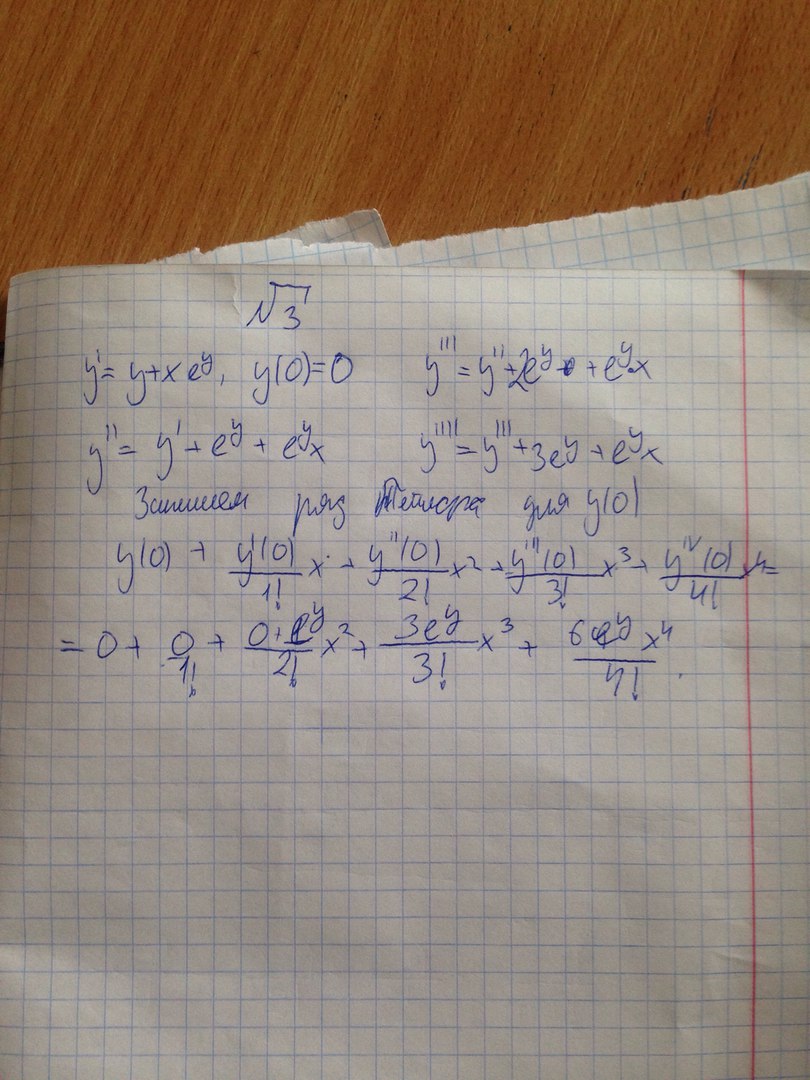 √3
y' = y + x e^y, y(0) = 0
y'' = y' + e^y + e^y x
y''' = y'' + 2e^y + e^y x
y'''' = y''' + 3e^y + e^y x
Запишем ряд Тейлора для y(0)
y(0) + y'(0)/1! x + y''(0)/2! x² + y'''(0)/3! x³ + y^IV(0)/4! x⁴ =
= 0 + 0/1! + (0 + e^y)/2! x² + 3e^y/3! x³ + 6e^y x⁴/4!